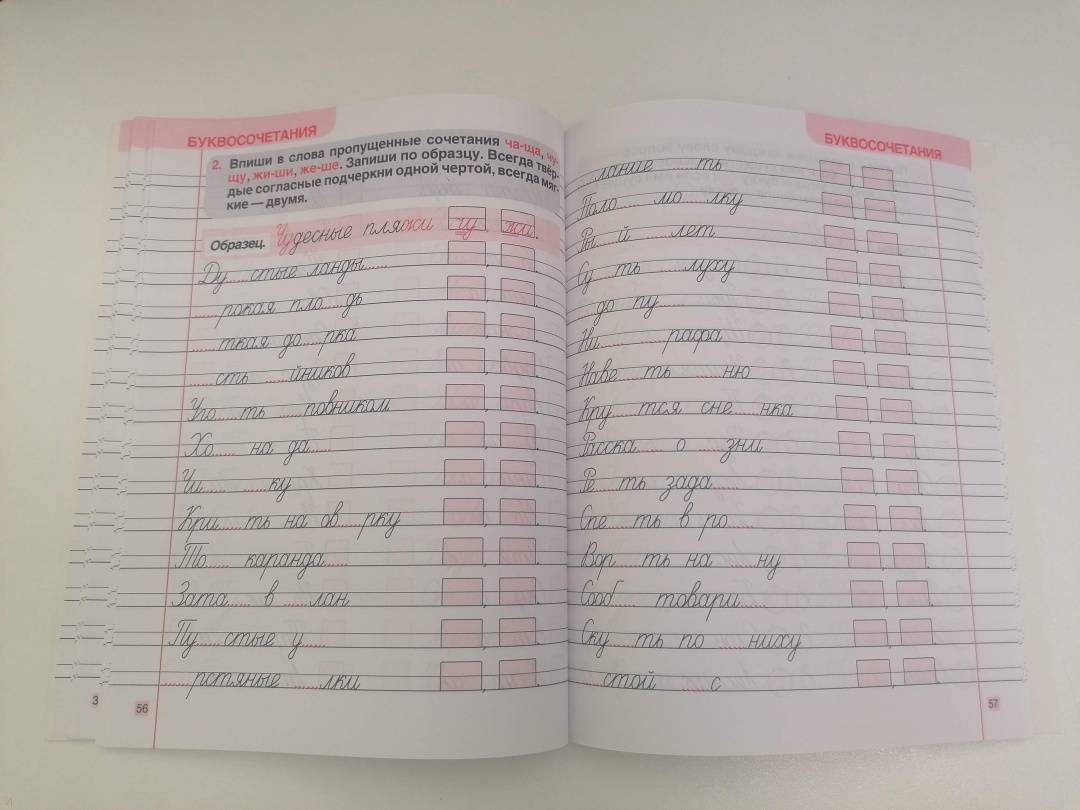 БУКВОСОЧЕТАНИЯ
2. Впиши в слова пропущенные сочетания ча-ща, чу-
щу, жи-ши, же-ше. Запиши по образцу. Всегда твёр-
дые согласные подчеркни одной чертой, всегда мяг-
кие — двумя.
Образец. Чудесные пляжи чу, жи.
Ду......стые ланды......
......рокая пло......дь
......ткая до......рка
......сть ......йников
Уго......ть ......повником
Хо...... на да......
Чи...... ......ку
Кри......ть на ов......рку
То...... каранда......
Зата...... в ......лан
Пу......стые у......
......рстяные ......лки
56
3
БУКВОСОЧЕТАНИЯ
......лание ......ть
Поло...... мо......лку
Ры......й ......лет
Су......ть ......луху
......до пу......
Ни...... ......рафа
Наве......ть ......ню
Кру......тся сне......нка
Расска...... о ......зни
Ре......ть зада......
Спе......ть в ро......
Вор......ть на ......ну
Сооб...... товари......
Ску......ть по ......ниху
......стой ......с
57